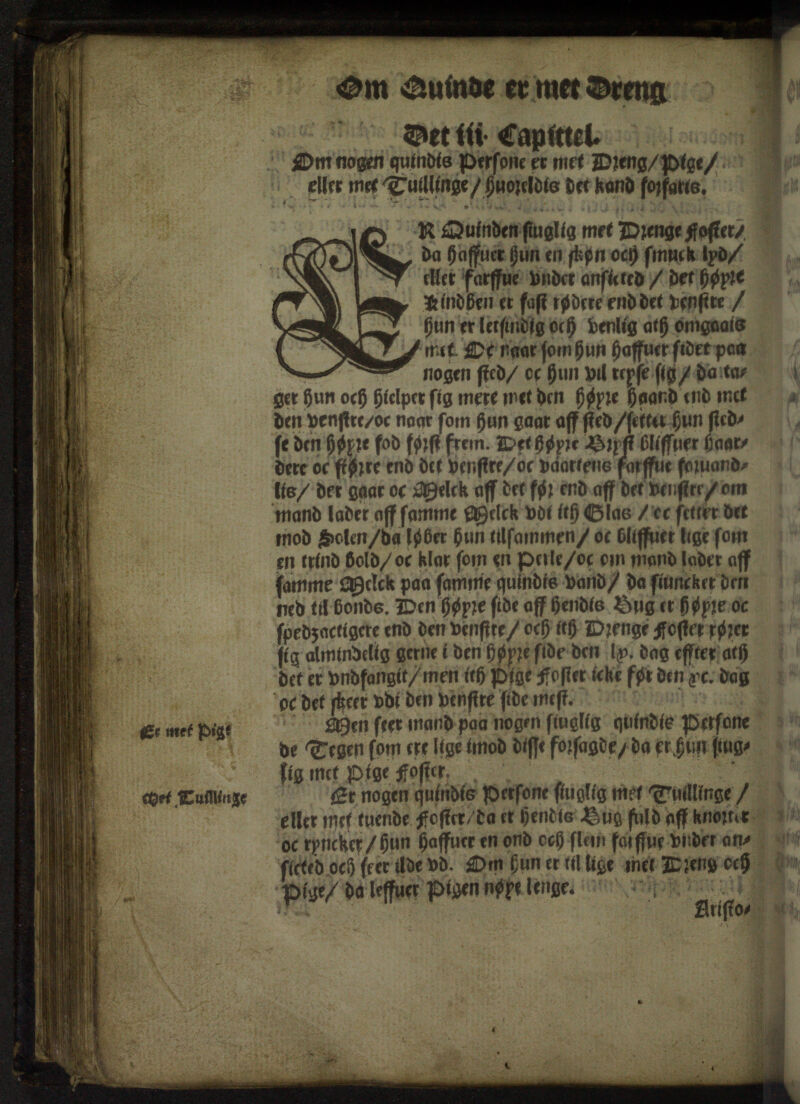 Om Quinde er met Dreng
Det iii. Capittel.
Om nogen quindis Persone er met Dreng/Pige/
eller met Tuillinge/huoreldis det kand forfaris.
ER Quinden siuglig met Drenge Foster/
da haffuer hun en skøn och smuck lyd/
eller farffue vnder ansicted / det høyre
Kindben er fast rødere end det venstre /
hun er letsindig och venlig ath omgaais
met. De naar som hun haffuer sidet paa
nogen sted/ oc hun vil reyse sig/ da ta⸗
ger hun och hielper sig mere met den høyre haand end met
den venstre/oc naar som hun gaar aff sted/setter hun sted⸗
se den høyre fod først frem. Det høyre Bryst bliffuer haar⸗
dere oc større end det venstre/oc vaartens farffue foruand⸗
lis/ der gaar oc Melck aff det før end aff det venstre/om
mand lader aff samme Melck vdi ith Glas / oc setter det
mod Solen/da løber hun tilsammen/ oc bliffuer lige som
en trind bold/ oc klar som en Perle/oc om mand lader aff
samme Melck paa samme quindis vand/ da siuncker den
ned til bonds. Den høyre side aff hendis Bug er høyre oc
spedzactigere end den venstre/ och ith Drenge Foster rører
sig almindelig gerne i den høyre side den lx. dag effter ath
det er vndfangit/men ith Pige Foster icke før den xc. dag
oc det skeer vdi den venstre side mest.
Er met Pige
Men seer mand paa nogen siuglig quindis Persone
de Tegen som ere lige imod disse forsagde/ da er hun siug⸗
lig met Pige Foster.
Met Tuillinge
Er nogen quindis Persone siuglig met Tuillinge /
eller met tuende Foster/da er hendis Bug fuld aff knorter
oc ryncker/hun haffuer en ond och slem farffue vnder an⸗
sicted och seer ilde vd. Om hun er til lige met Dreng och
Pige/ da leffuer Pigen nøpe lenge.
Aristo⸗